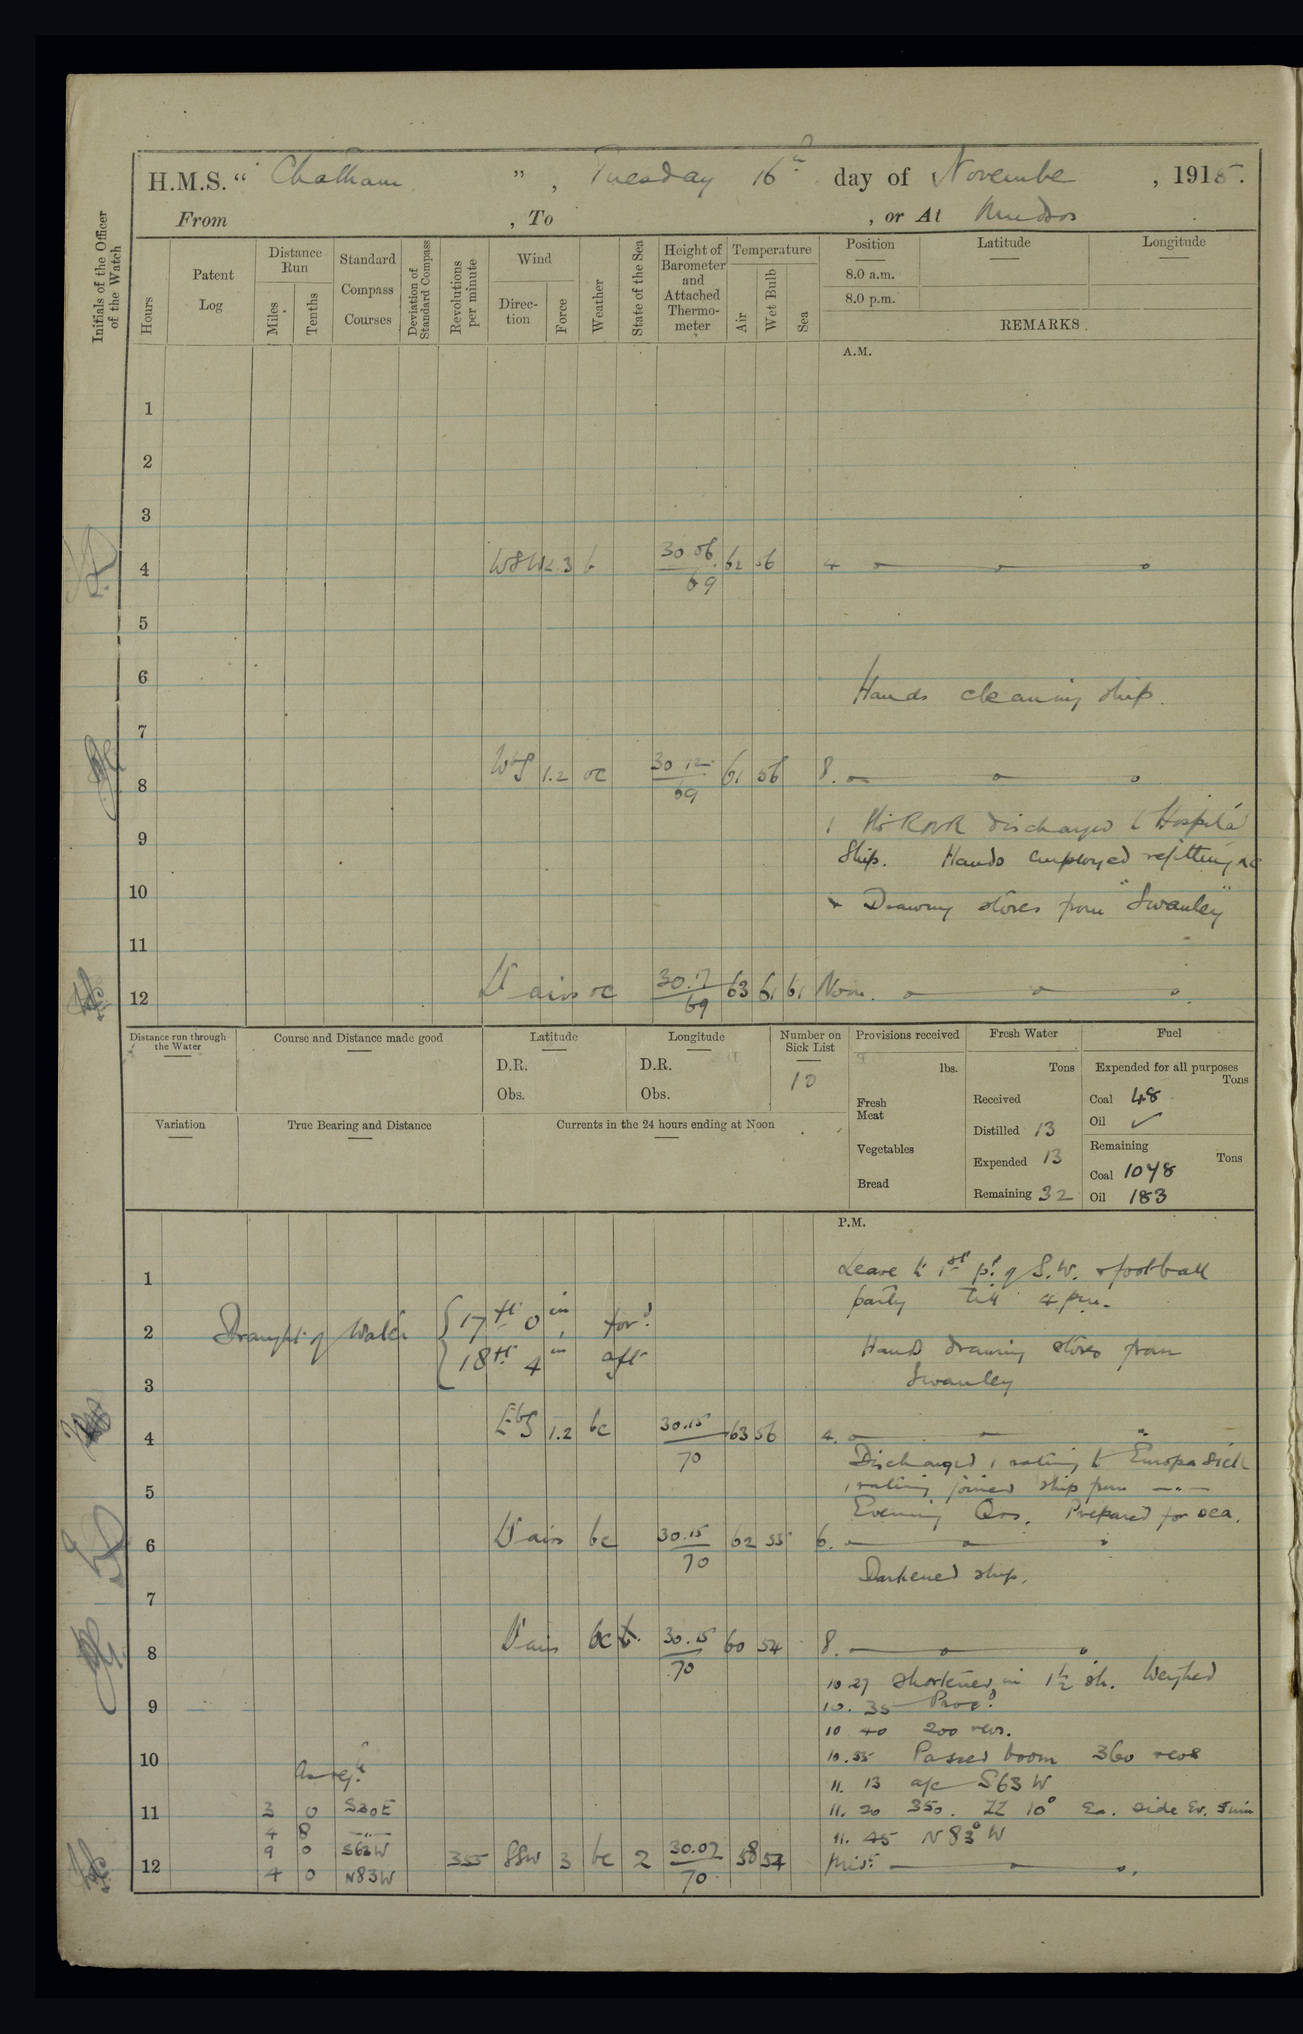 H.M.S. "Chatham", Tuesday 16th day of November, 1915.
From , To , or At Mudros
Initials of the Officer of the Watch
Hours
Patent Log
Distance Run
Miles
Tenths
Standard Compass Courses
Deviation of Standard Compass
Revolutions per minute
Wind
Direction
Force
Weather
State of the Sea
Height of Barometer and Attached Thermometer
Temperature
Air
Wet Bulb
Sea
Position
Latitude
Longitude
8.0 a.m.
8.0 p.m.
REMARKS
A.M.
1
2
3
4 WSW 2.3 b 30.06 69 62 56 4
5
6
Hands cleaning ship.
7
8 WbS 1.2 oc 30.12 69 61 56 8.
1 RNR discharged to Hospital
9
Ship. Hands employed refitting &c
10
& Drawing stores from "Swanley"
11
12 Lt airs oc 30.17 69 63 61 61 Noon.
Distance run through the Water
Course and Distance made good
Latitude
D.R.
Obs.
Longitude
D.R.
Obs.
Number on Sick List
10
Provisions received
lbs.
Fresh Meat
Vegetables
Bread
Fresh Water
Tons
Received
Distilled 13
Expended 13
Remaining 32
Fuel
Expended for all purposes
Tons
Coal 48
Oil ✓
Remaining
Tons
Coal 1078
Oil 183
Variation
True Bearing and Distance
Currents in the 24 hours ending at Noon
P.M.
Leave to 1st pt of S.W. & football
1
party till 4 p.m.
2 Draught of Water { 17 ft 0 in, for'd
{ 18 ft 4 in aft
Hands drawing stores from
Swanley
3
4 EbS 1.2 bc 30.15 70 63 56 4.
Discharged 1 rating to Europa sick
5
1 rating joined ship from —"—
Evening Qrs. Prepared for sea.
6 Lt airs bc 30.15 70 62 55 6.
Darkened ship.
7
8 Lt airs bc 30.15 70 60 54 8.
10.27 Shortened in 1½ sh. Weighed
9
10.35 Procd
10.40 200 revs.
10
10.55 Passed boom 360 revs
As reqd
11.13 a/c S63W
11 3 0 S30E
11.20 350. ZZ 10° Ea. side Ev. 5 min
4 8 —"—
11.45 N83°W
9 0 S63W
12 355 SSW 3 bc 2 30.07 70 58 54 Midt.
4 0 N83W